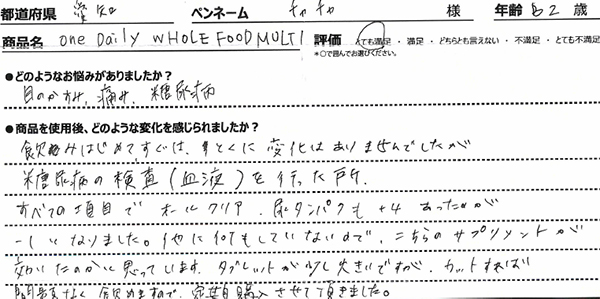 都道府県 愛知 ペンネーム チャチャ 様 年齢 52 歳
商品名 One Daily WHOLE FOOD MULTI 評価 とても満足・満足・どちらとも言えない・不満足・とても不満足
*○で囲んでお選びください。
●どのようなお悩みがありましたか？
目のかすみ、痛み、糖尿病
●商品を使用後、どのような変化を感じられましたか？
飲みはじめてすぐは、とくに変化はありませんでしたが
糖尿病の検査(血液)を行った所、
すべての項目でオールクリア、尿タンパクも +4 あったのが
−になりました。他に何もしていないので、こちらのサプリメントが
効いたのかと思っています。タブレットが少し大きいですが、カットすれば
問題なく飲めますので、定期購入させて頂きました。